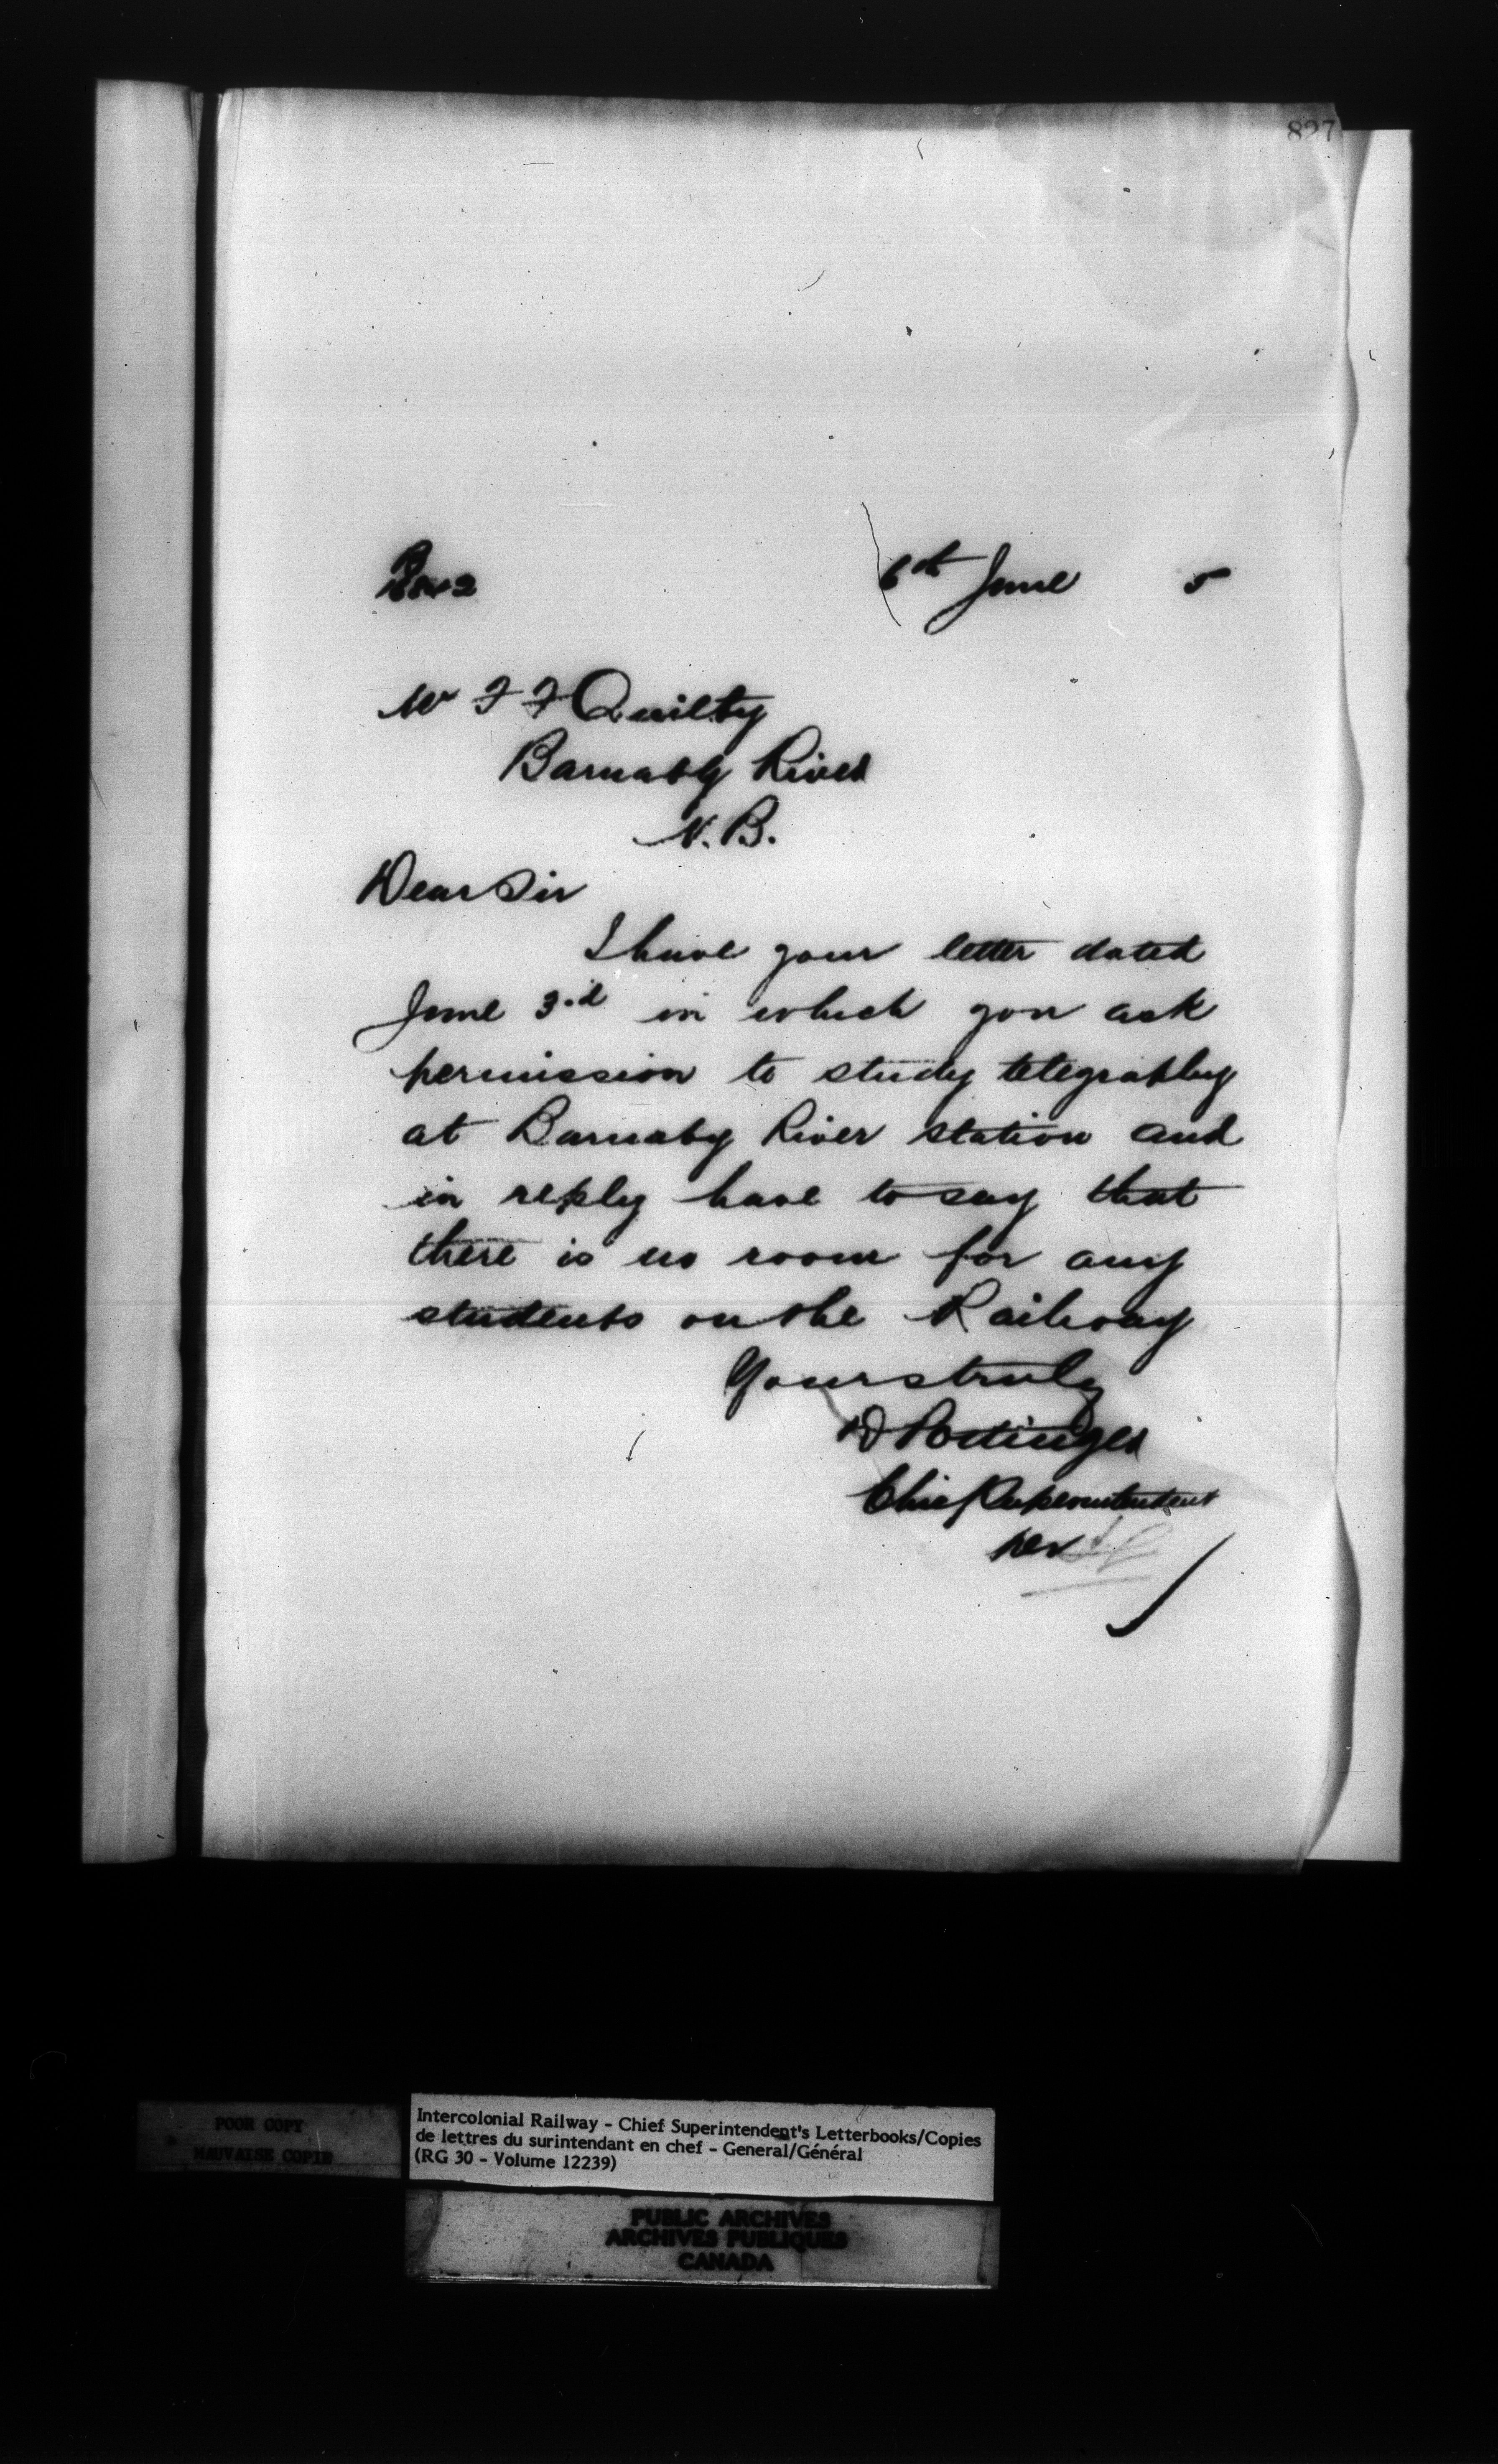 827
6th June 5
Mr F F Quilty
Barnaby River
N.B.
Dear Sir
I have your letter dated
June 3rd in which you ask
permission to study telegraphy
at Barnaby River station and
in reply have to say that
there is no room for any
students on the Railway
Yours truly
D Pottinger
Chief Superintendent
per
POOR COPY
MAUVAISE COPIE
Intercolonial Railway - Chief Superintendent's Letterbooks/Copies
de lettres du surintendant en chef - General/Général
(RG 30 - Volume 12239)
PUBLIC ARCHIVES
ARCHIVES PUBLIQUES
CANADA